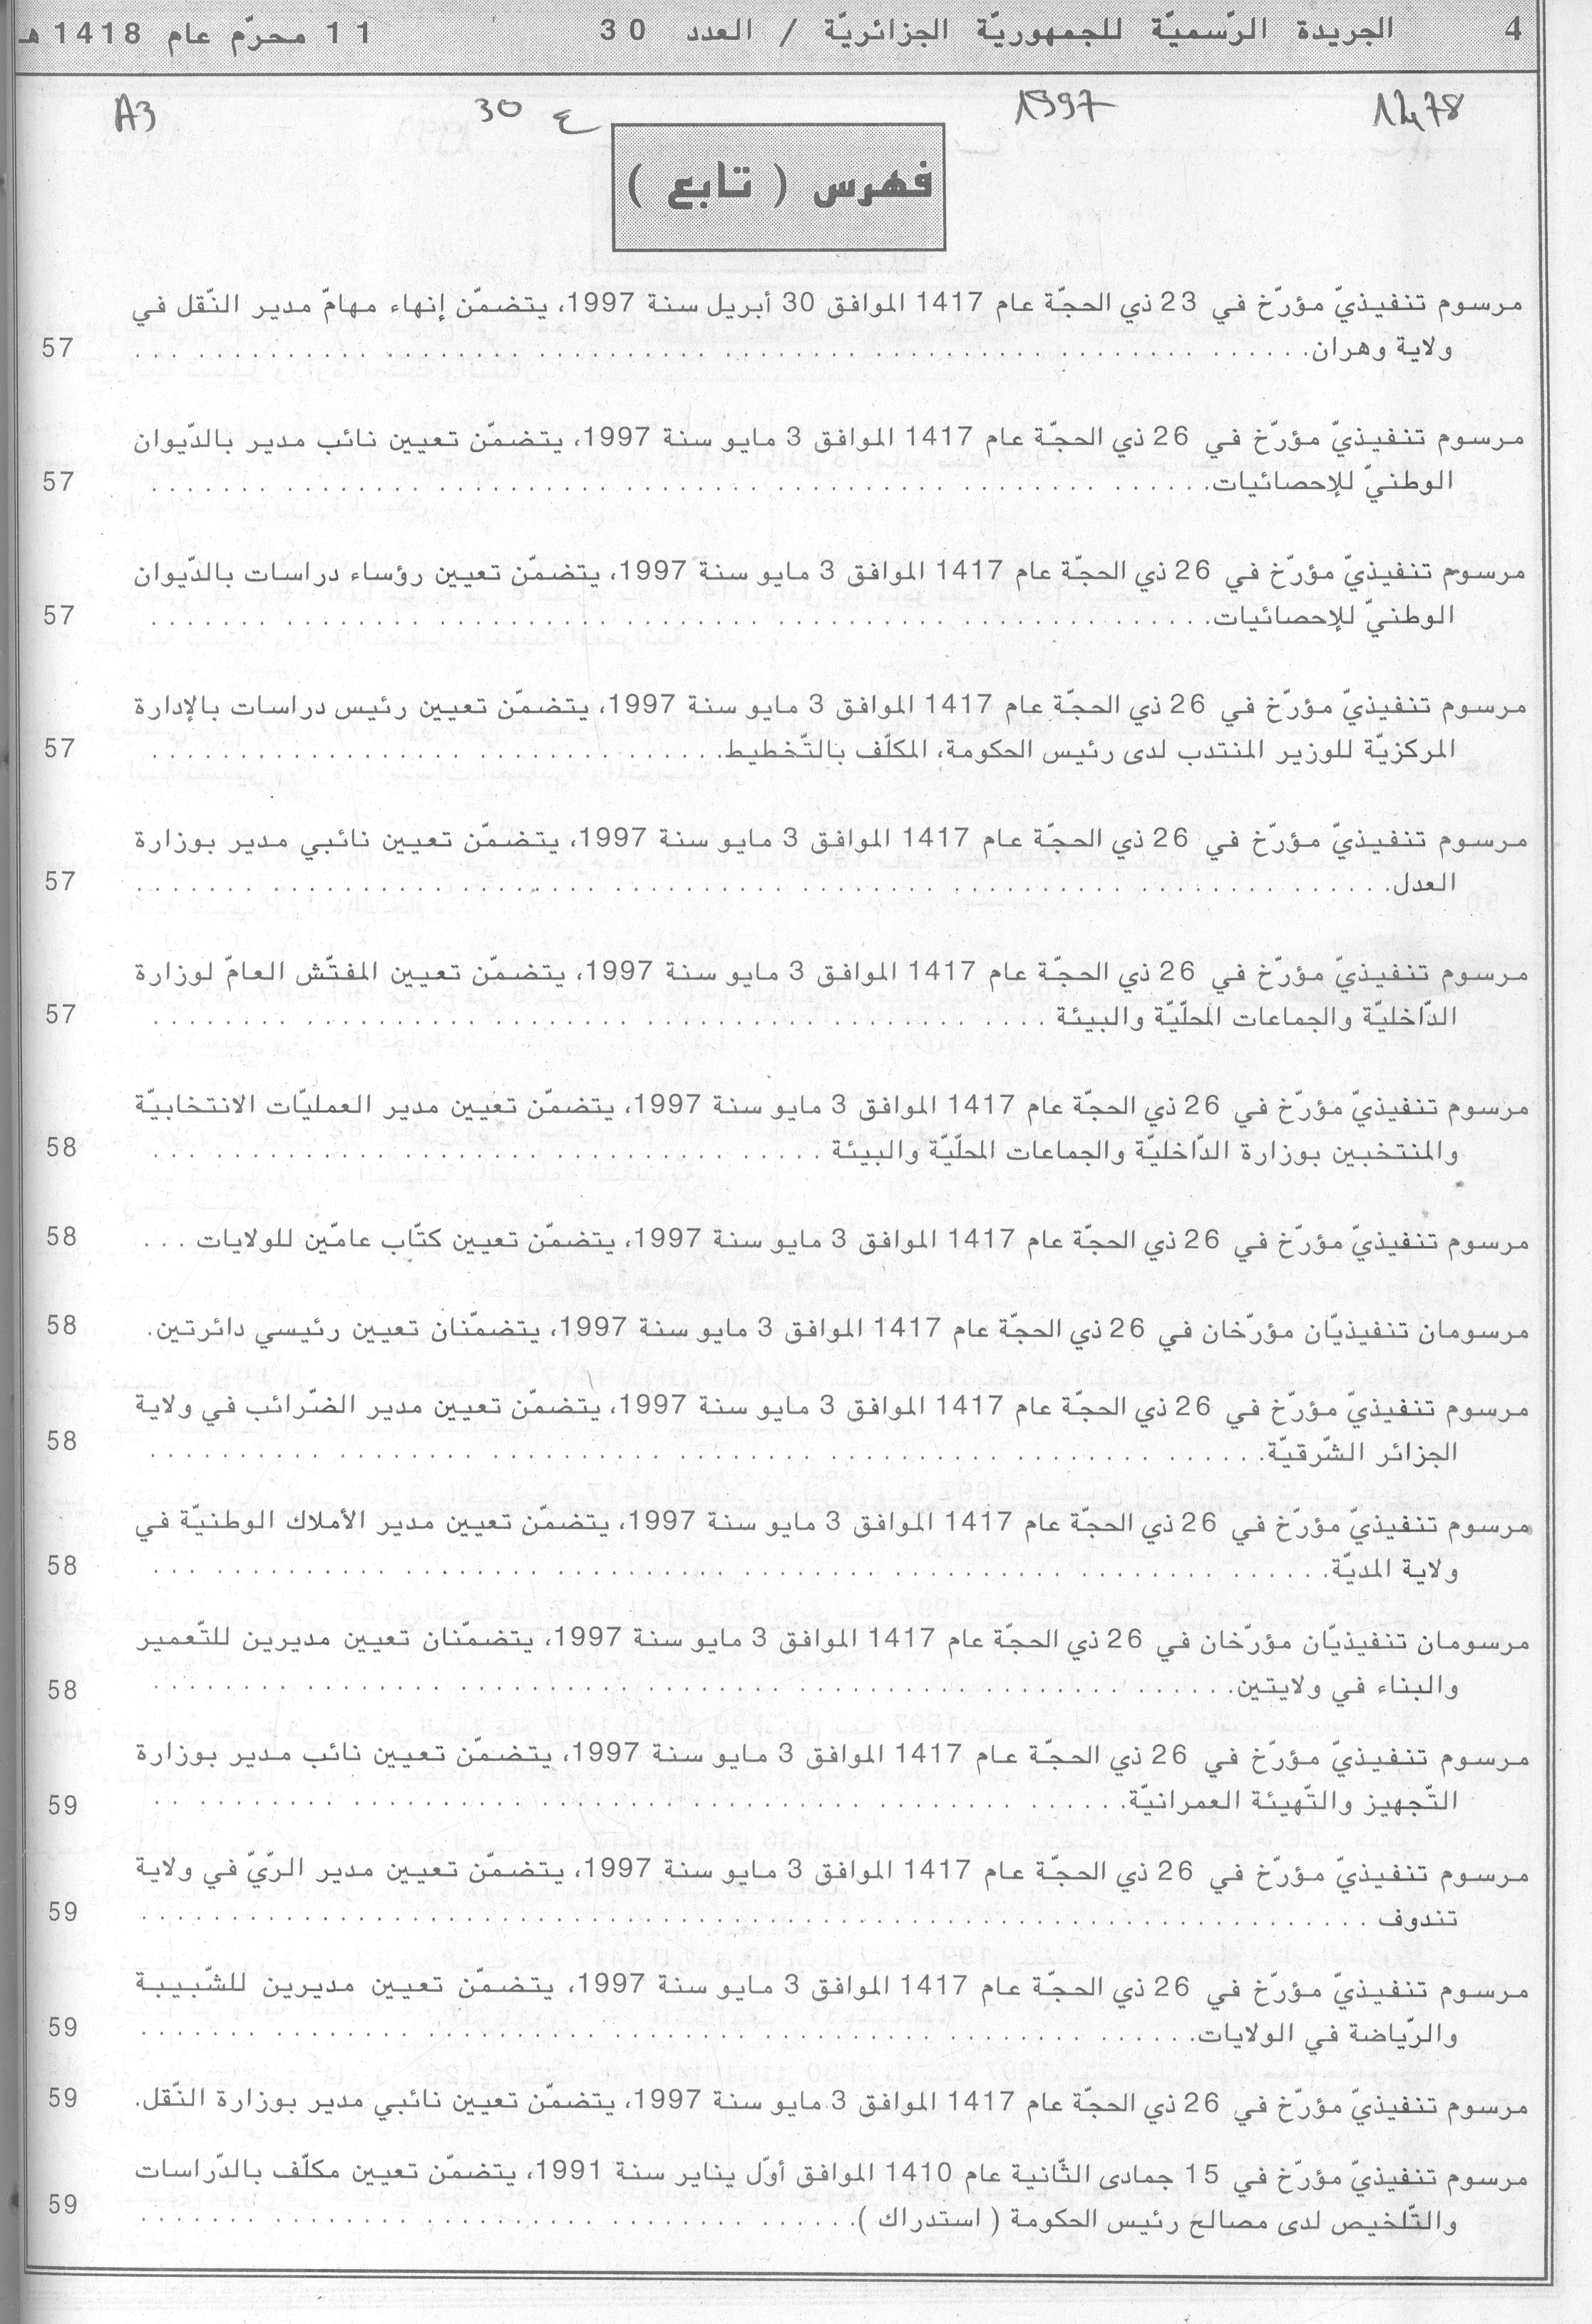 4 الجريدة الرّسميّة للجمهوريّة الجزائريّة / العدد 30 11 محرّم عام 1418 هـ
1478 1997 ع 30 A3
فهرس ( تابع )
مرسوم تنفيذيّ مؤرّخ في 23 ذي الحجّة عام 1417 الموافق 30 أبريل سنة 1997، يتضمّن إنهاء مهامّ مدير النّقل في
ولاية وهران. 57
مرسوم تنفيذيّ مؤرّخ في 26 ذي الحجّة عام 1417 الموافق 3 مايو سنة 1997، يتضمّن تعيين نائب مدير بالدّيوان
الوطنيّ للإحصائيات. 57
مرسوم تنفيذيّ مؤرّخ في 26 ذي الحجّة عام 1417 الموافق 3 مايو سنة 1997، يتضمّن تعيين رؤساء دراسات بالدّيوان
الوطنيّ للإحصائيات. 57
مرسوم تنفيذيّ مؤرّخ في 26 ذي الحجّة عام 1417 الموافق 3 مايو سنة 1997، يتضمّن تعيين رئيس دراسات بالإدارة
المركزيّة للوزير المنتدب لدى رئيس الحكومة، المكلّف بالتّخطيط. 57
مرسوم تنفيذيّ مؤرّخ في 26 ذي الحجّة عام 1417 الموافق 3 مايو سنة 1997، يتضمّن تعيين نائبي مدير بوزارة
العدل. 57
مرسوم تنفيذيّ مؤرّخ في 26 ذي الحجّة عام 1417 الموافق 3 مايو سنة 1997، يتضمّن تعيين المفتّش العامّ لوزارة
الدّاخليّة والجماعات المحلّيّة والبيئة 57
مرسوم تنفيذيّ مؤرّخ في 26 ذي الحجّة عام 1417 الموافق 3 مايو سنة 1997، يتضمّن تعيين مدير العمليّات الانتخابيّة
والمنتخبين بوزارة الدّاخليّة والجماعات المحلّيّة والبيئة 58
مرسوم تنفيذيّ مؤرّخ في 26 ذي الحجّة عام 1417 الموافق 3 مايو سنة 1997، يتضمّن تعيين كتّاب عامّين للولايات 58
مرسومان تنفيذيّان مؤرّخان في 26 ذي الحجّة عام 1417 الموافق 3 مايو سنة 1997، يتضمّنان تعيين رئيسي دائرتين. 58
مرسوم تنفيذيّ مؤرّخ في 26 ذي الحجّة عام 1417 الموافق 3 مايو سنة 1997، يتضمّن تعيين مدير الضّرائب في ولاية
الجزائر الشّرقيّة. 58
مرسوم تنفيذيّ مؤرّخ في 26 ذي الحجّة عام 1417 الموافق 3 مايو سنة 1997، يتضمّن تعيين مدير الأملاك الوطنيّة في
ولاية المديّة. 58
مرسومان تنفيذيّان مؤرّخان في 26 ذي الحجّة عام 1417 الموافق 3 مايو سنة 1997، يتضمّنان تعيين مديرين للتّعمير
والبناء في ولايتين. 58
مرسوم تنفيذيّ مؤرّخ في 26 ذي الحجّة عام 1417 الموافق 3 مايو سنة 1997، يتضمّن تعيين نائب مدير بوزارة
التّجهيز والتّهيئة العمرانيّة. 59
مرسوم تنفيذيّ مؤرّخ في 26 ذي الحجّة عام 1417 الموافق 3 مايو سنة 1997، يتضمّن تعيين مدير الرّيّ في ولاية
تندوف 59
مرسوم تنفيذيّ مؤرّخ في 26 ذي الحجّة عام 1417 الموافق 3 مايو سنة 1997، يتضمّن تعيين مديرين للشّبيبة
والرّياضة في الولايات. 59
مرسوم تنفيذيّ مؤرّخ في 26 ذي الحجّة عام 1417 الموافق 3 مايو سنة 1997، يتضمّن تعيين نائبي مدير بوزارة النّقل. 59
مرسوم تنفيذيّ مؤرّخ في 15 جمادى الثّانية عام 1410 الموافق أوّل يناير سنة 1991، يتضمّن تعيين مكلّف بالدّراسات
والتّلخيص لدى مصالح رئيس الحكومة ( استدراك ). 59